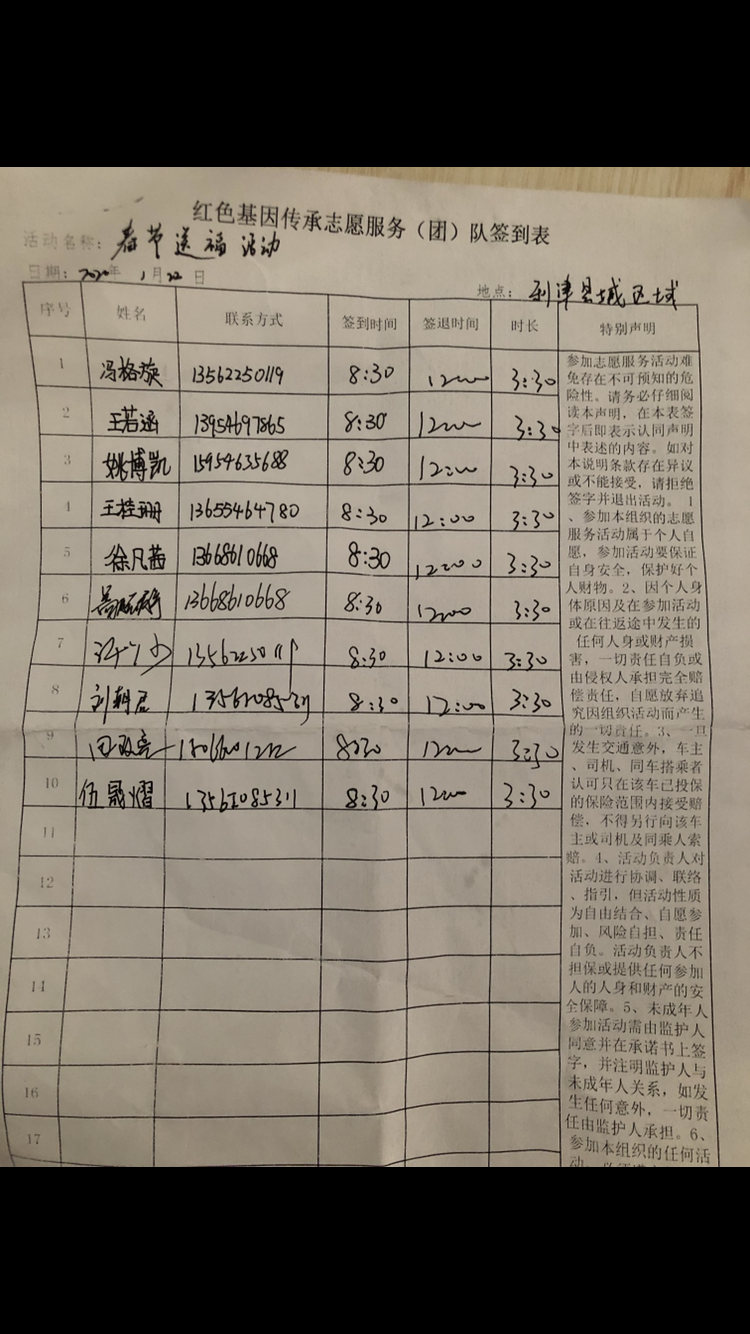 红色基因传承志愿服务（团）队签到表
活动名称：春节送福活动
日期：2020年 1月22日
地点：利津县城区域
序号 姓名 联系方式 签到时间 签退时间 时长 特别声明
1 冯格旋 13562250119 8:30 12:00 3:30
2 王若涵 13954697865 8:30 12:00 3:30
3 姚博凯 15954635688 8:30 12:00 3:30
4 王桂珊 13655464780 8:30 12:00 3:30
5 徐凡茜 13668610668 8:30 12:00 3:30
6 13668610668 8:30 12:00 3:30
7 13562250119 8:30 12:00 3:30
8 刘朝君 8:30 12:00 3:30
9 8:30 12:00 3:30
10 伍晟熠 8:30 12:00 3:30
11
12
13
14
15
16
17
参加志愿服务活动难
免存在不可预知的危
险性。请务必仔细阅
读本声明，在本表签
字后即表示认同声明
中表述的内容。如对
本说明条款存在异议
或不能接受，请拒绝
签字并退出活动。 1
、参加本组织的志愿
服务活动属于个人自
愿，参加活动要保证
自身安全，保护好个
人财物。2、因个人身
体原因及在参加活动
或在往返途中发生的
任何人身或财产损
害，一切责任自负或
由侵权人承担完全赔
偿责任，自愿放弃追
究因组织活动而产生
的一切责任。3、一旦
发生交通意外，车主
、司机、同车搭乘者
认可只在该车已投保
的保险范围内接受赔
偿，不得另行向该车
主或司机及同乘人索
赔。4、活动负责人对
活动进行协调、联络
、指引，但活动性质
为自由结合、自愿参
加、风险自担、责任
自负。活动负责人不
担保或提供任何参加
人的人身和财产的安
全保障。5、未成年人
参加活动需由监护人
同意并在承诺书上签
字，并注明监护人与
未成年人关系，如发
生任何意外，一切责
任由监护人承担。6、
参加本组织的任何活